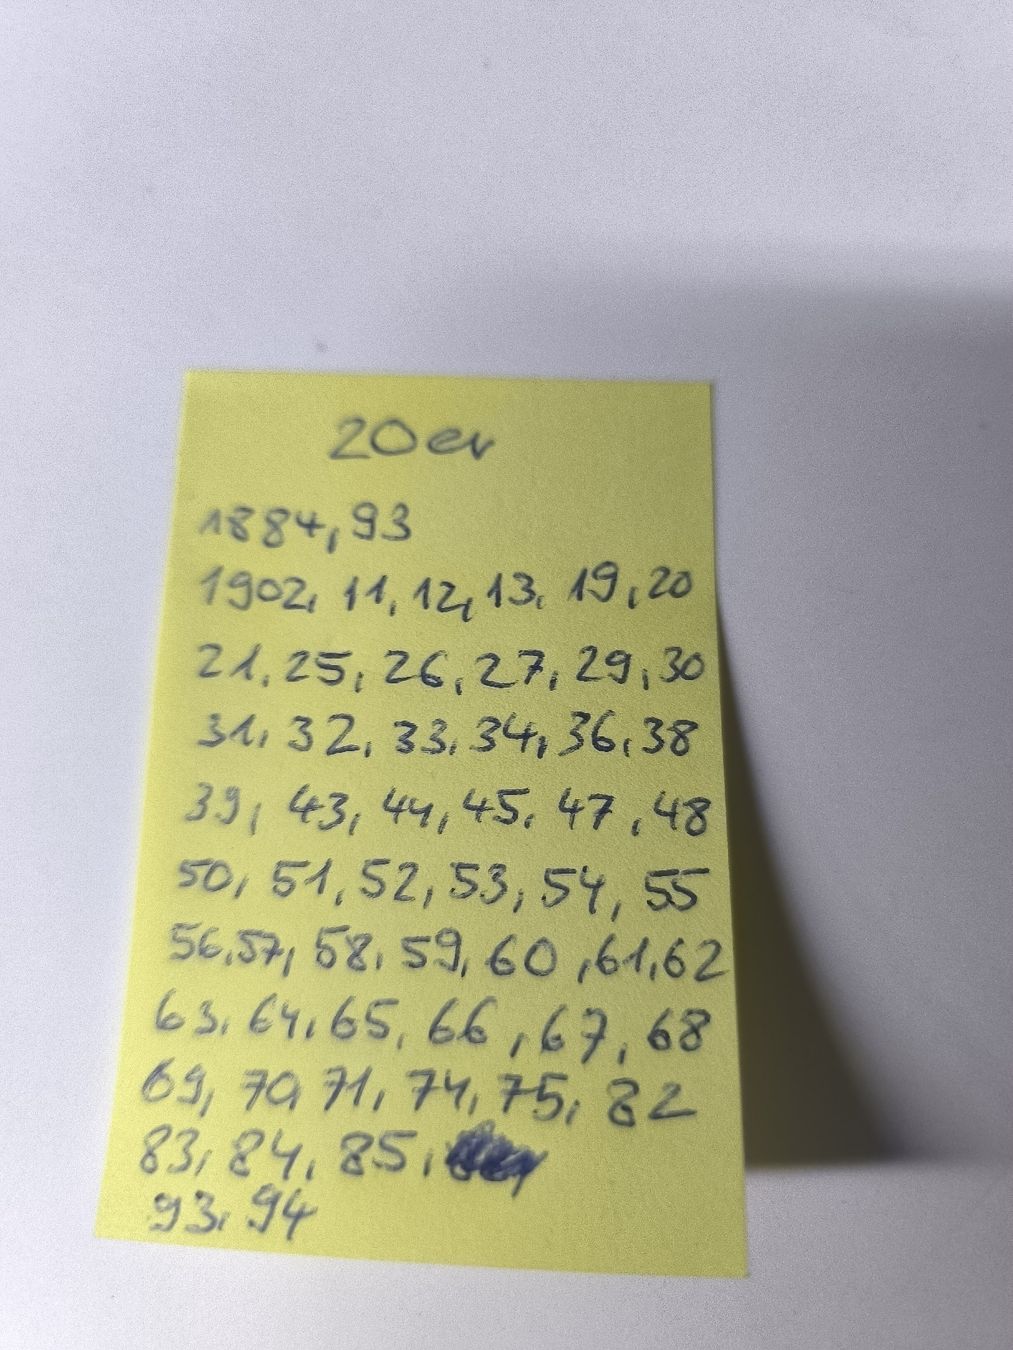 20er
1884, 93
1902, 11, 12, 13, 19, 20
21, 25, 26, 27, 29, 30
31, 32, 33, 34, 36, 38
39, 43, 44, 45, 47, 48
50, 51, 52, 53, 54, 55
56, 57, 58, 59, 60, 61, 62
63, 64, 65, 66, 67, 68
69, 70, 71, 74, 75, 82
83, 84, 85,
93, 94